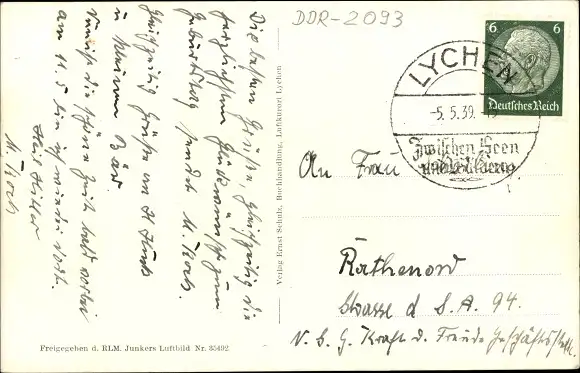 DDR-2093
6 6
Deutsches Reich
LYCHEN
-5.5.39.
Zwischen Seen
und Wäldern
Die besten Grüße, gleichzeitig die
herzlichsten Glückwünsche zum
Geburtstag sendet M.
Gleichzeitig Grüße an H
u
die schöne Zeit bald vorbei
am 11.5 bin ich wieder dort.
Heil Hitler
M.
Verlag Ernst Schulz, Buchhandlung, Luftkurort Lychen
An Frau
Rathenow
Strasse d S. A. 94.
N. S. G. Kraft d. Freude Geschäftsstelle
Freigegeben d. RLM. Junkers Luftbild Nr. 35492